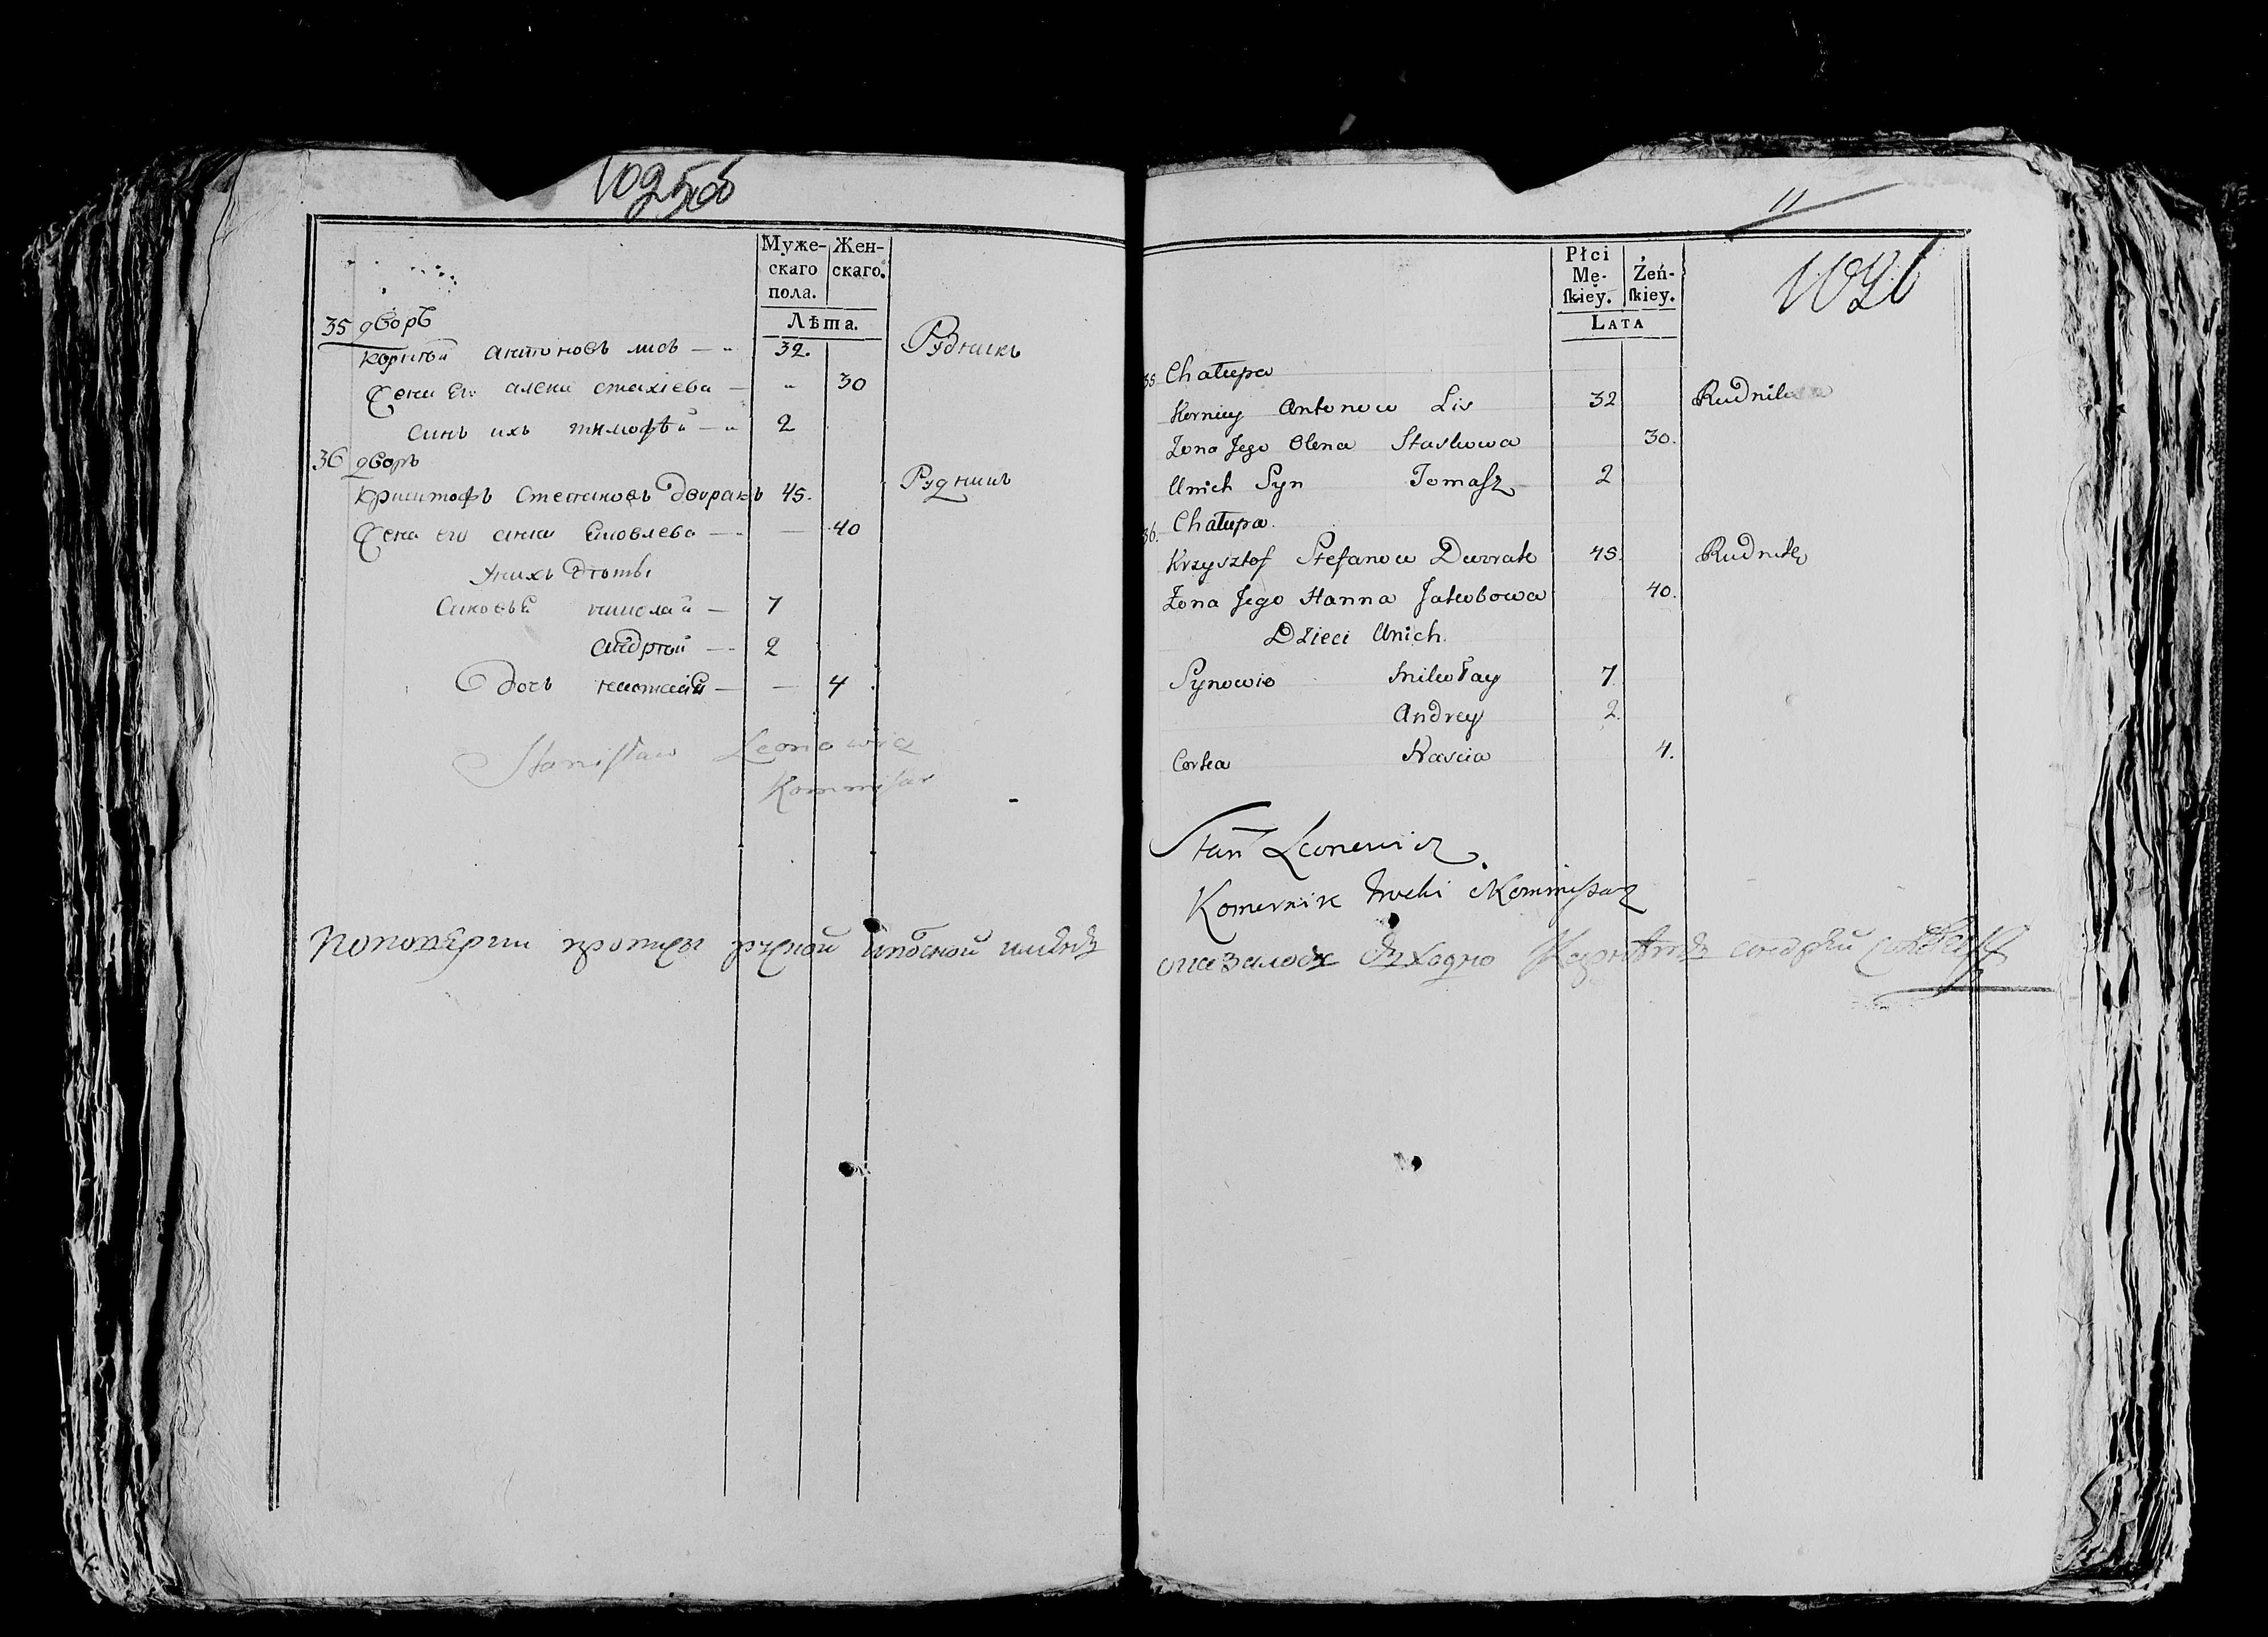 1025об
Муже-
скаго
пола.
Жен-
скаго.
Лѣта.
35 дворъ
Корнѣй антоновъ лисъ — 32. Рудникъ
Жена его алена стахіева — 30
Синъ ихъ тимофѣй — 2
36 дворъ
Криштофъ Степановъ Дворакъ 45. Рудникъ
Жена его анна Яковлева — 40
Унихъ дѣти
Синовья николай — 7
андрѣй — 2
Дочь настасія — 4
Stanisław Leonowicz
Kommisar
Поповерки противу ручной
11
1026
Płci
Mę-
skiey.
Żeń-
skiey.
Lata
35 Chałupa
Korniey Antonow Lis 32 Rudnik
Żona Jego Olena Staskowa 30.
Unich Syn Tomasz 2
36. Chałupa.
Krzysztof Stefanow Dworak 45. Rudnik
Żona Jego Hanna Jakobowa 40.
Dzieci Unich.
Synowie Mikołay 7
Andrey 2.
Corka Nascia 4.
Stan Leonowicz
Komornik Trocki Kommisarz
оказалось сходно андрей